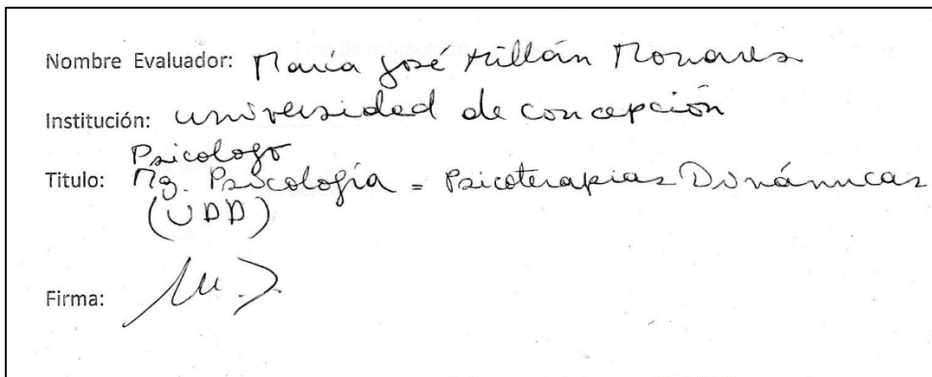 Nombre Evaluador: María José Millán Monares
Institución: Universidad de Concepción
Psicologo
Titulo: Mg. Psicología = Psicoterapias Dinámicas
(UDD)
Firma: